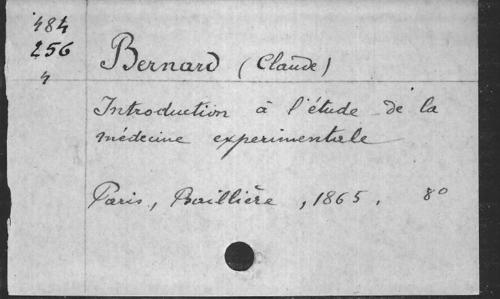 484
256
4
Bernard (Claude)
Introduction à l'étude de la
médecine experimentale
Paris, Baillière, 1865. 8º